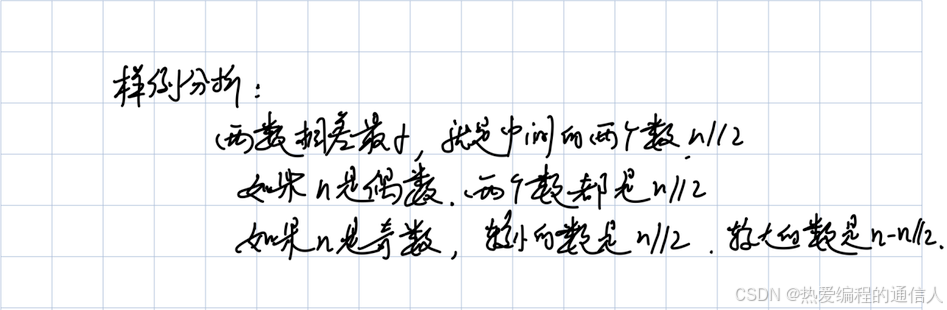 样例分析：
两数相差最小，就是中间的两个数 n//2
如果n是偶数．两个数都是n//2
如果n是奇数，较小的数是n//2．较大的数是n-n//2.
CSDN @热爱编程的通信人